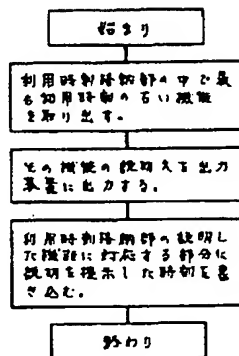 始まり
利用時刻格納部の中で最
も利用時刻の古い機能
を取り出す。
その機能の説明文を出力
装置に出力する。
利用時刻格納部の説明し
た機能に対応する部分に
説明を提示した時刻を書
き込む。
終わり